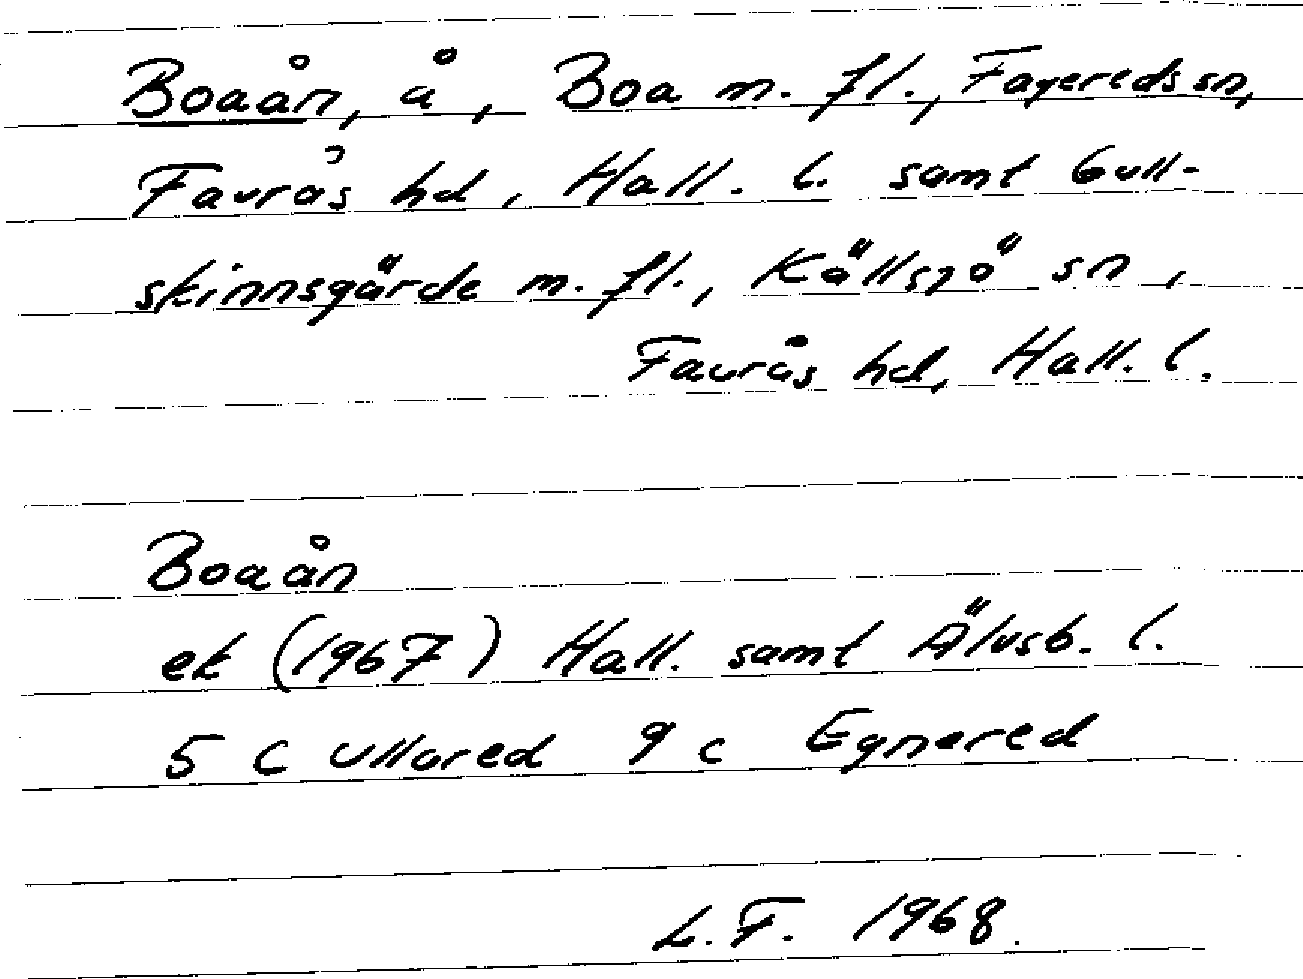 Boaån, å, Boa m. fl., Fagereds sn,
Faurås hd, Hall. l. samt Gull-
skinnsgärde m. fl., Källsjö sn,
Faurås hd, Hall. l.
Boaån
ek (1967) Hall. samt Älvsb. l.
5 C Ullared 9 c Egnered
L.F. 1968.